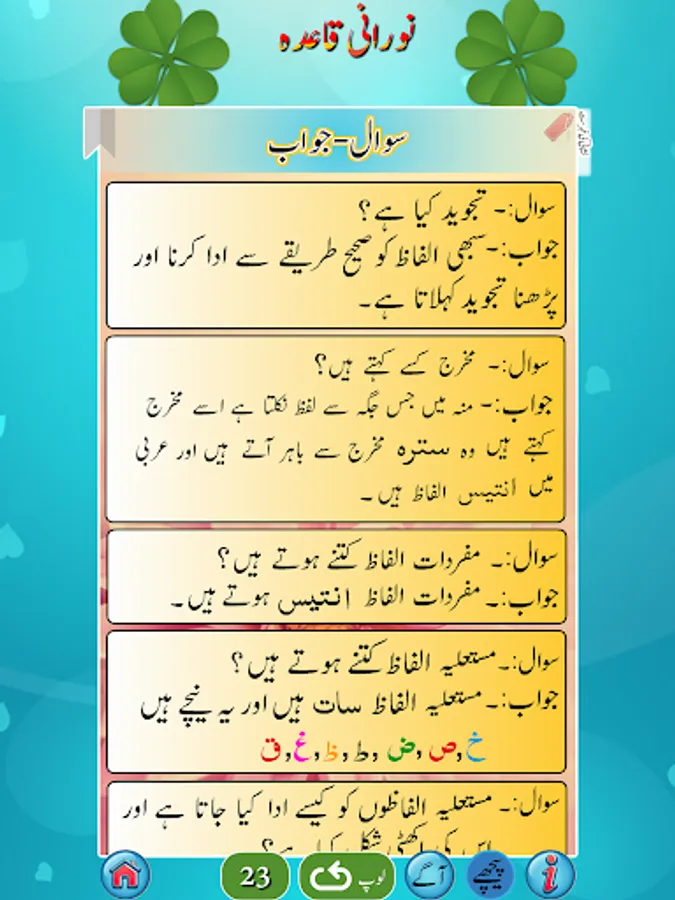 نورانی قاعدہ
سوال-جواب
سوال:۔ تجوید کیا ہے؟
جواب:۔سبھی الفاظ کو صحیح طریقے سے ادا کرنا اور
پڑھنا تجوید کہلاتا ہے۔
سوال:۔ مخرج کسے کہتے ہیں؟
جواب:۔ منہ میں جس جگہ سے لفظ نکلتا ہے اسے مخرج
کہتے ہیں وہ سترہ مخرج سے باہر آتے ہیں اور عربی
میں انتیس الفاظ ہیں۔
سوال:۔ مفردات الفاظ کتنے ہوتے ہیں؟
جواب:۔ مفردات الفاظ انتیس ہوتے ہیں۔
سوال:۔مستعلیہ الفاظ کتنے ہوتے ہیں؟
جواب:۔مستعلیہ الفاظ سات ہیں اور یہ نیچے ہیں
خ,ص,ض,ط,ظ,غ,ق
سوال:۔ مستعلیہ الفاظوں کو کیسے ادا کیا جاتا ہے اور
اس کی اکھٹی شکل کیا ہے؟
23 لوپ آگے پیچھے i